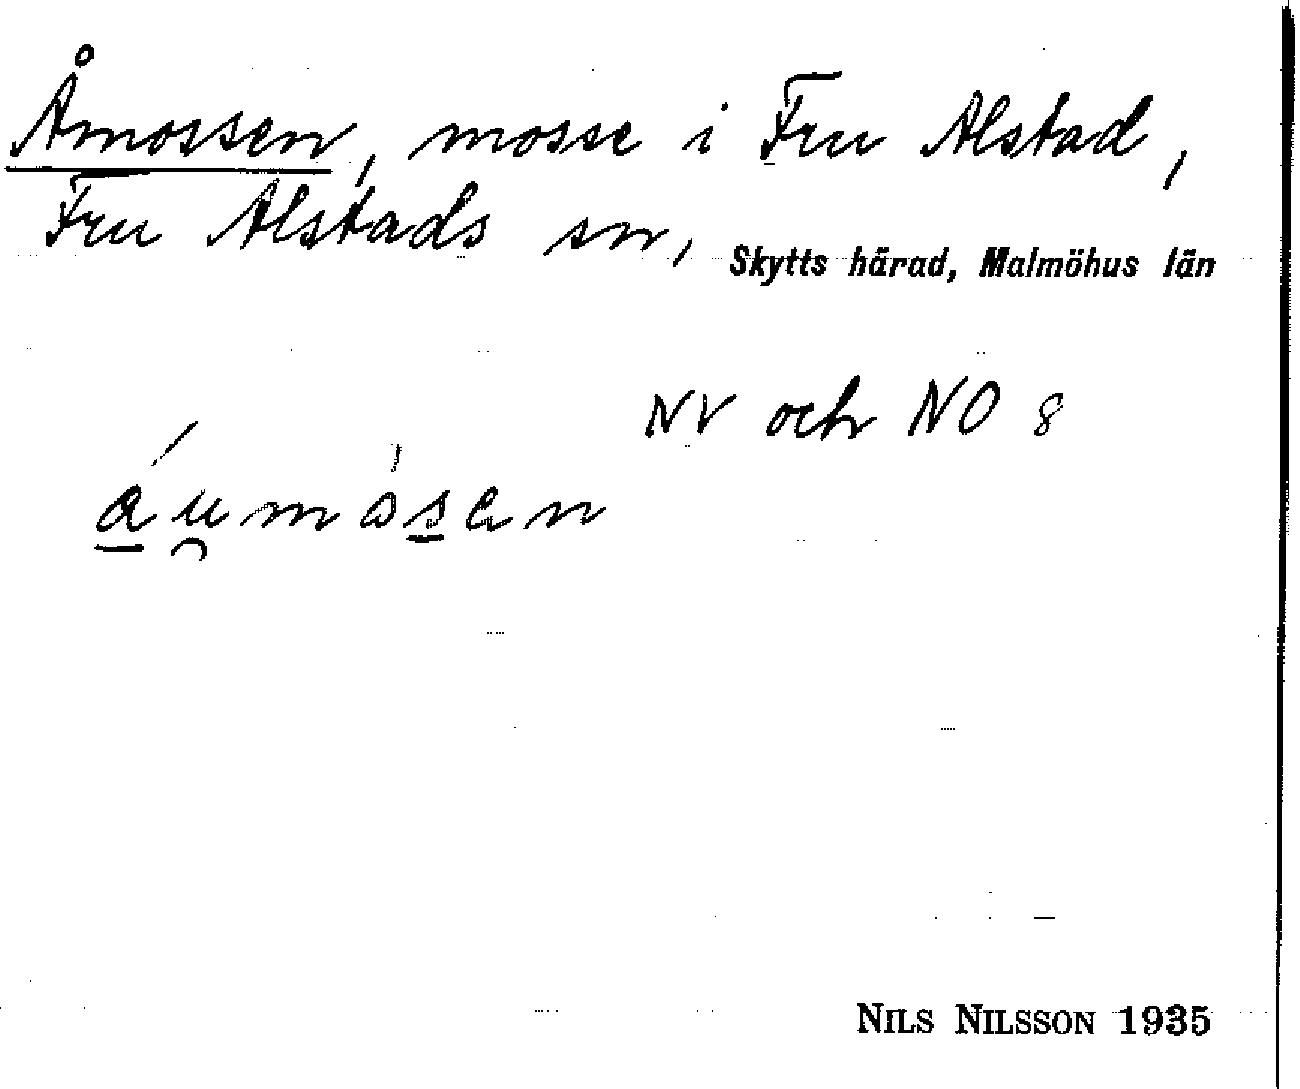 Åmossen, mosse i Fru Alstad,
Fru Alstads sn, Skytts härad, Malmöhus län
NV och NO 8
a̲u̯mòs̲en
NILS NILSSON 1935